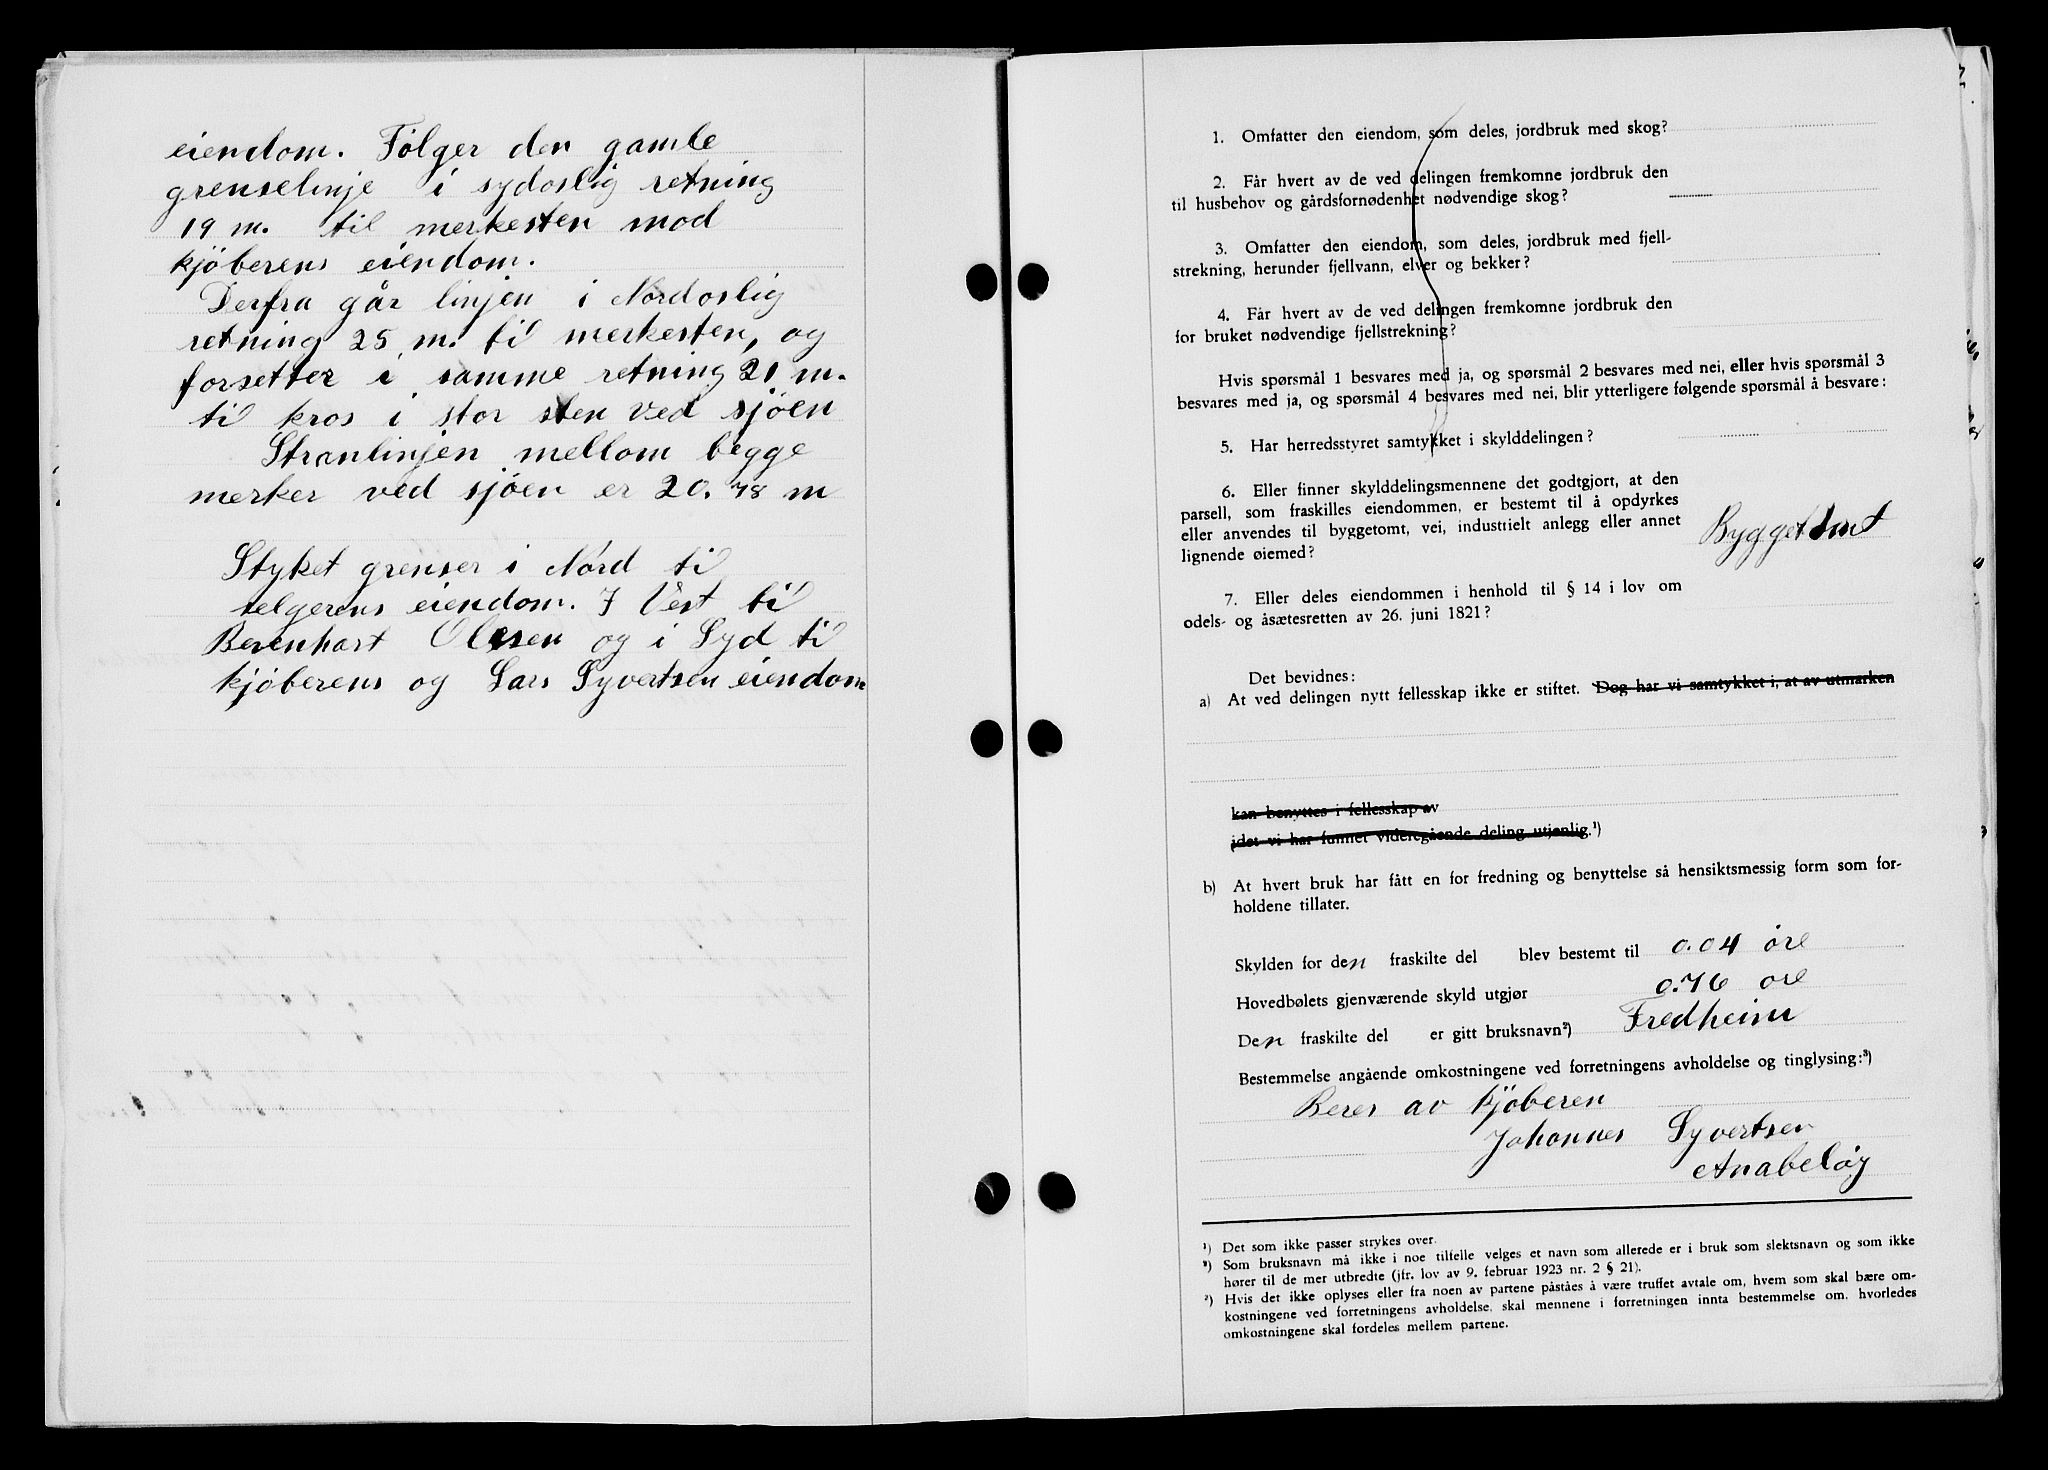 eiendom. Følger den gamle
grenselinje i sydoslig retning
19 m. til merkesten mod
kjöberens eiendom.
Derfra går linjen i Nordoslig
retning 25 m. ti merkesten, og
forsetter i samme retning 21 m.
ti kros i stor sten ved sjöen
Stranlinjen mellom begge
merker ved sjöen er 20.78 m
Styket grenser i Nord ti
selgerens eiendom. I Vest ti
Berenhart Olesen og i Syd ti
kjøberens og Lars Syvertsen eiendom
1. Omfatter den eiendom, som deles, jordbruk med skog?
2. Får hvert av de ved delingen fremkomne jordbruk den
til husbehov og gårdsfornødenhet nødvendige skog?
3. Omfatter den eiendom, som deles, jordbruk med fjell-
strekning, herunder fjellvann, elver og bekker?
4. Får hvert av de ved delingen fremkomne jordbruk den
for bruket nødvendige fjellstrekning?
Hvis spørsmål 1 besvares med ja, og spørsmål 2 besvares med nei, eller hvis spørsmål 3
besvares med ja, og spørsmål 4 besvares med nei, blir ytterligere følgende spørsmål å besvare:
5. Har herredsstyret samtykket i skylddelingen?
6. Eller finner skylddelingsmennene det godtgjort, at den
parsell, som fraskilles eiendommen, er bestemt til å opdyrkes
eller anvendes til byggetomt, vei, industrielt anlegg eller annet
lignende øiemed?
Byggetomt
7. Eller deles eiendommen i henhold til § 14 i lov om
odels- og åsætesretten av 26. juni 1821?
Det bevidnes:
a) At ved delingen nytt fellesskap ikke er stiftet. Dog har vi samtykket i, at av utmarken
kan benyttes i fellesskap av
idet vi har funnet videregående deling utjenlig.¹)
b) At hvert bruk har fått en for fredning og benyttelse så hensiktsmessig form som for-
holdene tillater.
Skylden for den fraskilte del blev bestemt til 0.04 öre
Hovedbølets gjenværende skyld utgjør 0.76 öre
Den fraskilte del er gitt bruksnavn²) Fredheim
Bestemmelse angående omkostningene ved forretningens avholdelse og tinglysing:³)
Beres av kjöberen
Johannes Syvertsen
Anabelöy
¹) Det som ikke passer strykes over.
²) Som bruksnavn må ikke i noe tilfelle velges et navn som allerede er i bruk som slektsnavn og som ikke
hører til de mer utbredte (jfr. lov av 9. februar 1923 nr. 2 § 21).
²) Hvis det ikke oplyses eller fra noen av partene påståes å være truffet avtale om, hvem som skal bære om-
kostningene ved forretningens avholdelse, skal mennene i forretningen innta bestemmelse om, hvorledes
omkostningene skal fordeles mellem partene.